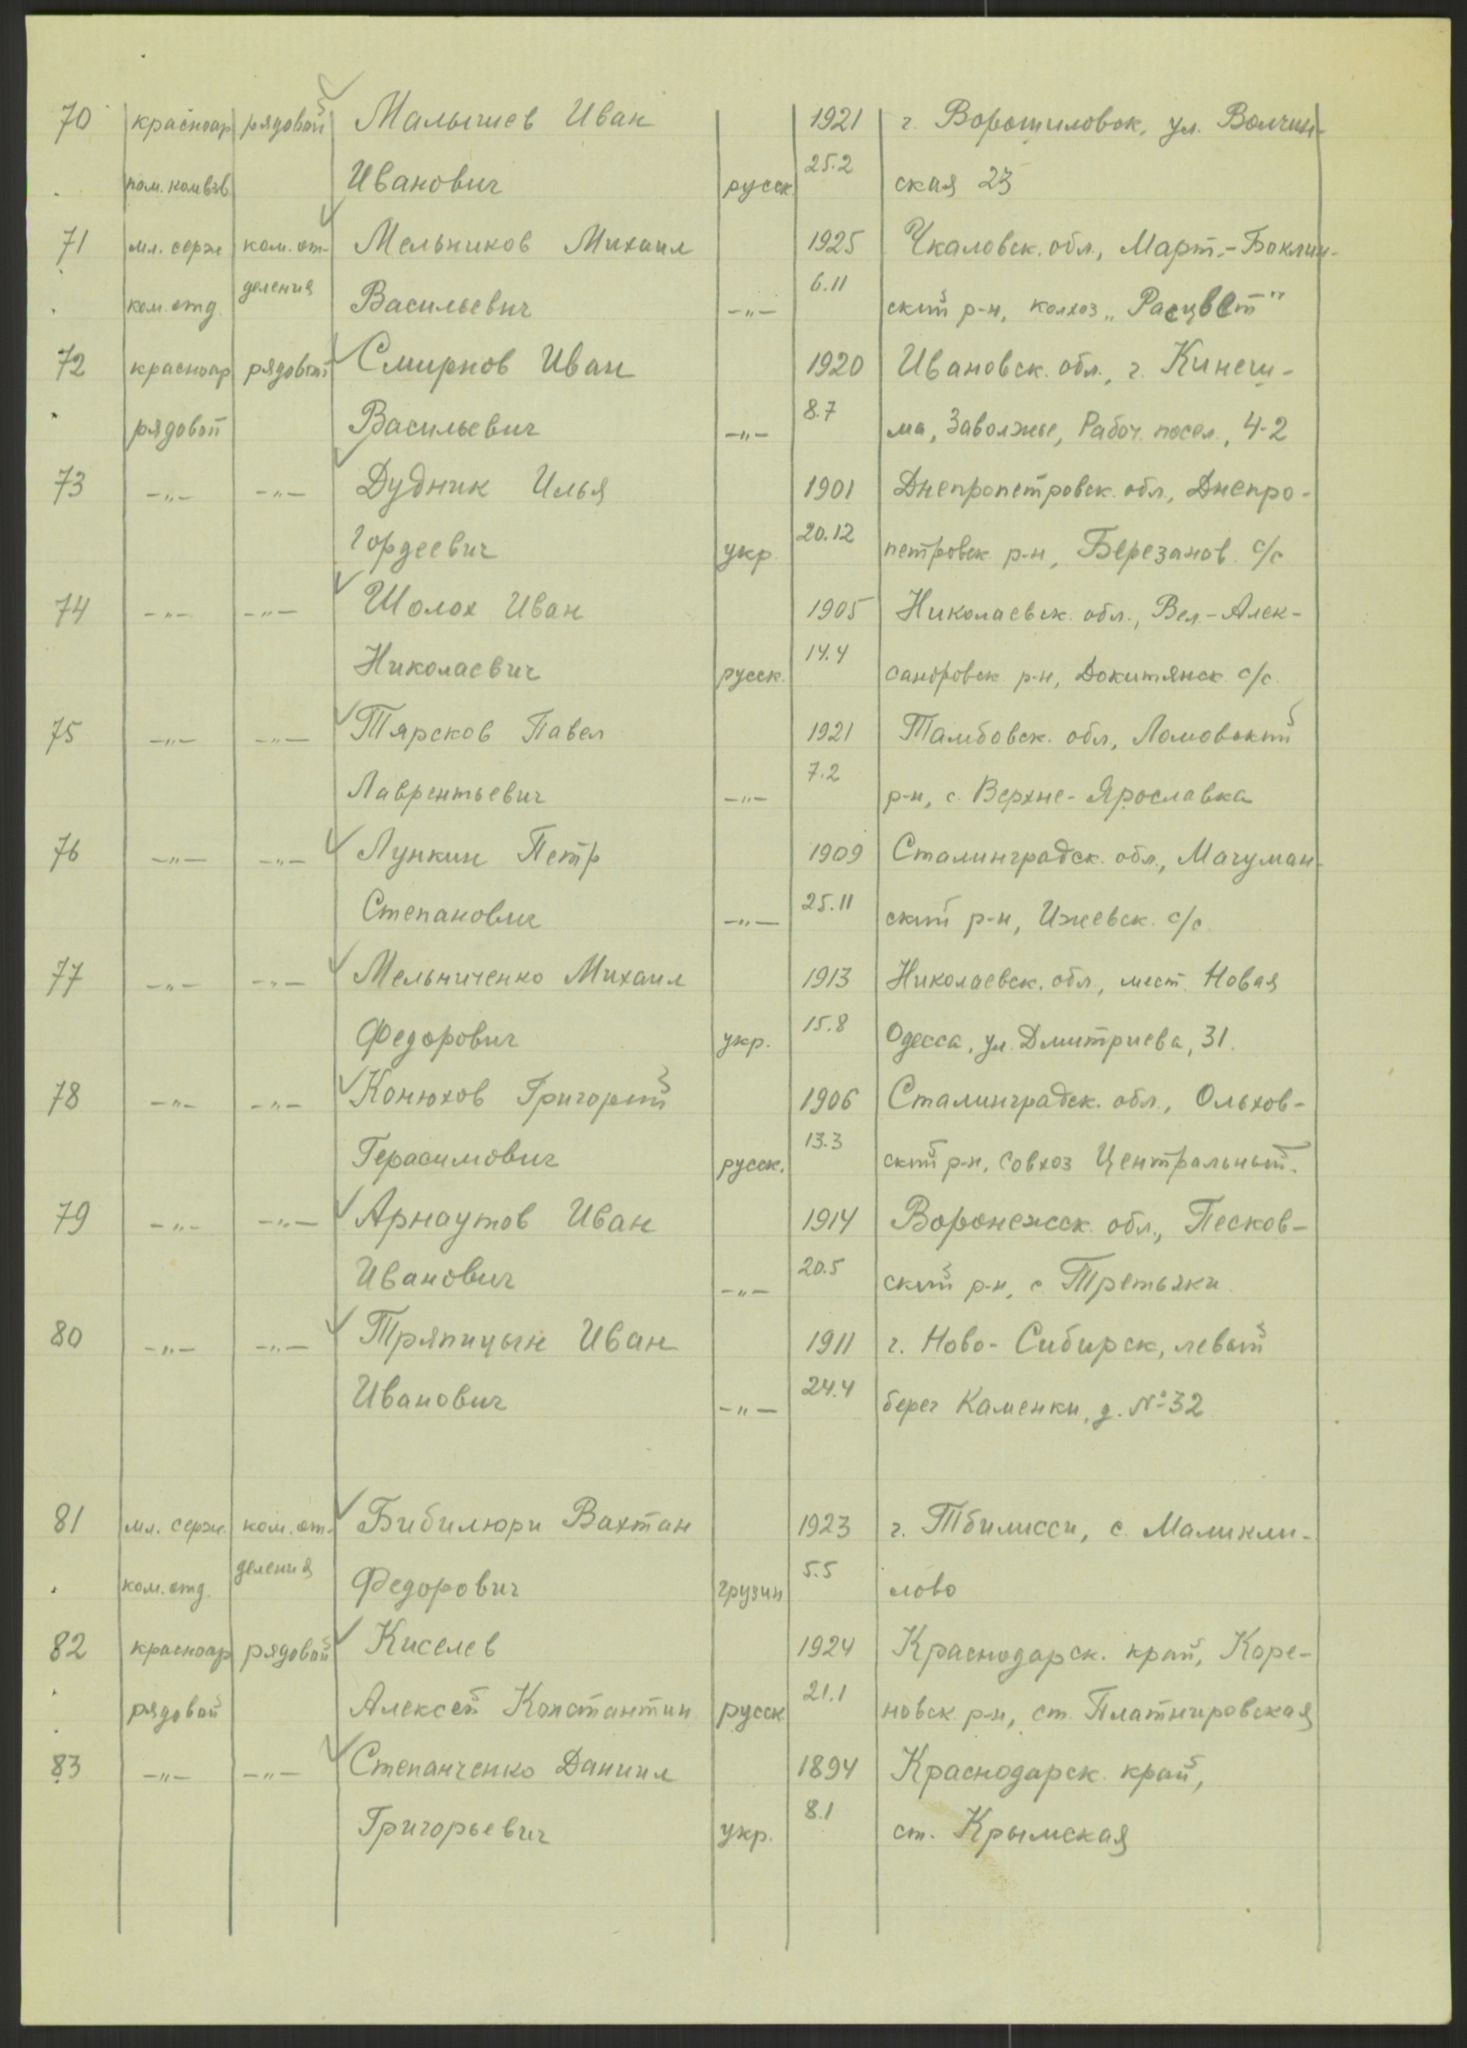 70 красноар рядовой Малышев Иван 1921 г. Ворошиловск, ул. Волчин-
пом. комвзв Иванович русск. 25.2 ская 23
71 мл. серж ком. от- Мельников Михаил 1925 Чкаловск. обл., Март.-Боклин-
ком. отд. деления Васильевич -"- 6.11 ский р-н, колхоз „Расцвет"
72 красноар рядовой Смирнов Иван 1920 Ивановск. обл., г. Кинеш-
рядовой Васильевич -"- 8.7 ма, Заволжье, Рабоч. посел., 4-2
73 -"- -"- Дудник Илья 1901 Днепропетровск. обл., Днепро-
Гордеевич укр. 20.12 петровск р-н, Березанов. с/с
74 -"- -"- Шолох Иван 1905 Николаевск. обл., Вел.-Алек-
Николаевич русск. 14.4 сандровск р-н, Докитянск с/с.
75 -"- -"- Тярсков Павел 1921 Тамбовск. обл, Ломовский
Лаврентьевич -"- 7.2 р-н, с. Верхне-Ярославка
76 -"- -"- Лункин Петр 1909 Сталинградск. обл., Мачуман-
Степанович -"- 25.11 ский р-н, Ижевск. с/с
77 -"- -"- Мельниченко Михаил 1913 Николаевск. обл., мест. Новая
Федорович укр. 15.8 Одесса, ул. Дмитриева, 31.
78 -"- -"- Конюхов Григорий 1906 Сталинградск. обл., Ольхов-
Герасимович русск. 13.3 ский р-н, совхоз Центральный.
79 -"- -"- Арнаутов Иван 1914 Воронежск. обл., Песков-
Иванович -"- 20.5 ский р-н, с Третьяки
80 -"- -"- Тряпицын Иван 1911 г. Ново-Сибирск, левый
Иванович -"- 24.4 берег Каменки, д. №32
81 мл. серж. ком. от- Бибилюри Вахтан 1923 г. Тбилисси, с. Маликли-
ком. отд. деления Федорович грузин 5.5 лово
82 красноар рядовой Киселев 1924 Краснодарск. край, Коре-
рядовой Алексей Константин русск 21.1 новск р-н, ст. Платнировская
83 -"- -"- Степанченко Даниил 1894 Краснодарск. край,
Григорьевич укр. 8.1 ст. Крымская